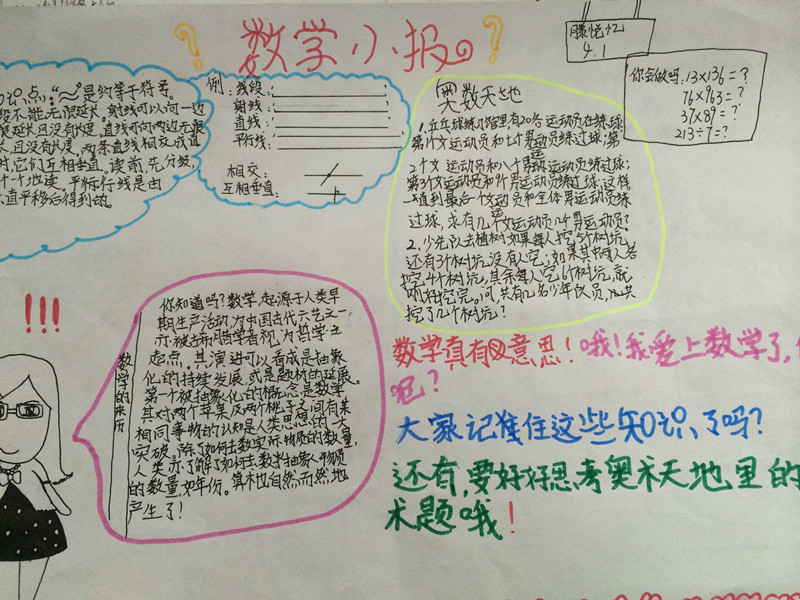 数学小报
滕悦忆
4.1
你会做吗:13×136=?
76×963=?
37×89=?
213÷7=?
知识点:“≈”是约等于符号。
线段不能无限延长。射线可以向一边
限延长且没有长度。直线可向两边无限
长且没有长度。两条直线相交成直
时,它们互相垂直。读前,先分级,
个一个地读。平标行线是由
直平移后得到的。
例:线段:
射线:
直线:
平行线:
相交:
互相垂直:
奥数天地
1.乒乓球练习馆里,有20名运动员在练球,
第1个女运动员和七个男运动员练过球;第
2个女运动员和八个男运动员练过球;
第3个女运动员和9个男运动员练过球;这样
一直到最后一个女运动员和全体男运动员练
过球,求有几个女运动员几个男运动员?
2.少先队去植树如果每人挖5个树坑,
还有3个树坑没有人挖;如果其中两人各
挖4个树坑,其余每人挖6个树坑,就
恰好挖完。问,共有几名少年队员,共
挖了几个树坑?
数学的来历
你知道吗?数学,起源于人类早
期生产活动,为中国古代六艺之一,
亦被古希腊学者视为哲学之
起点。其演进可以看成是抽象
化的持续发展,或是题材的延展。
第一个被抽象化的概念是数字
其对两个苹果及两个桃子之间有某
相同事物的认知是人类思想的一大
突破。除了如何去数实际物质的数量,
人类亦了解了如何去数抽象物质
的数量,如年份。算术也自然而然地
产生了!
!!!
数学真有意思!哦!我爱上数学了,
呢?
大家记住这些知识了吗?
还有,要好好思考奥术天地里的
术题哦!